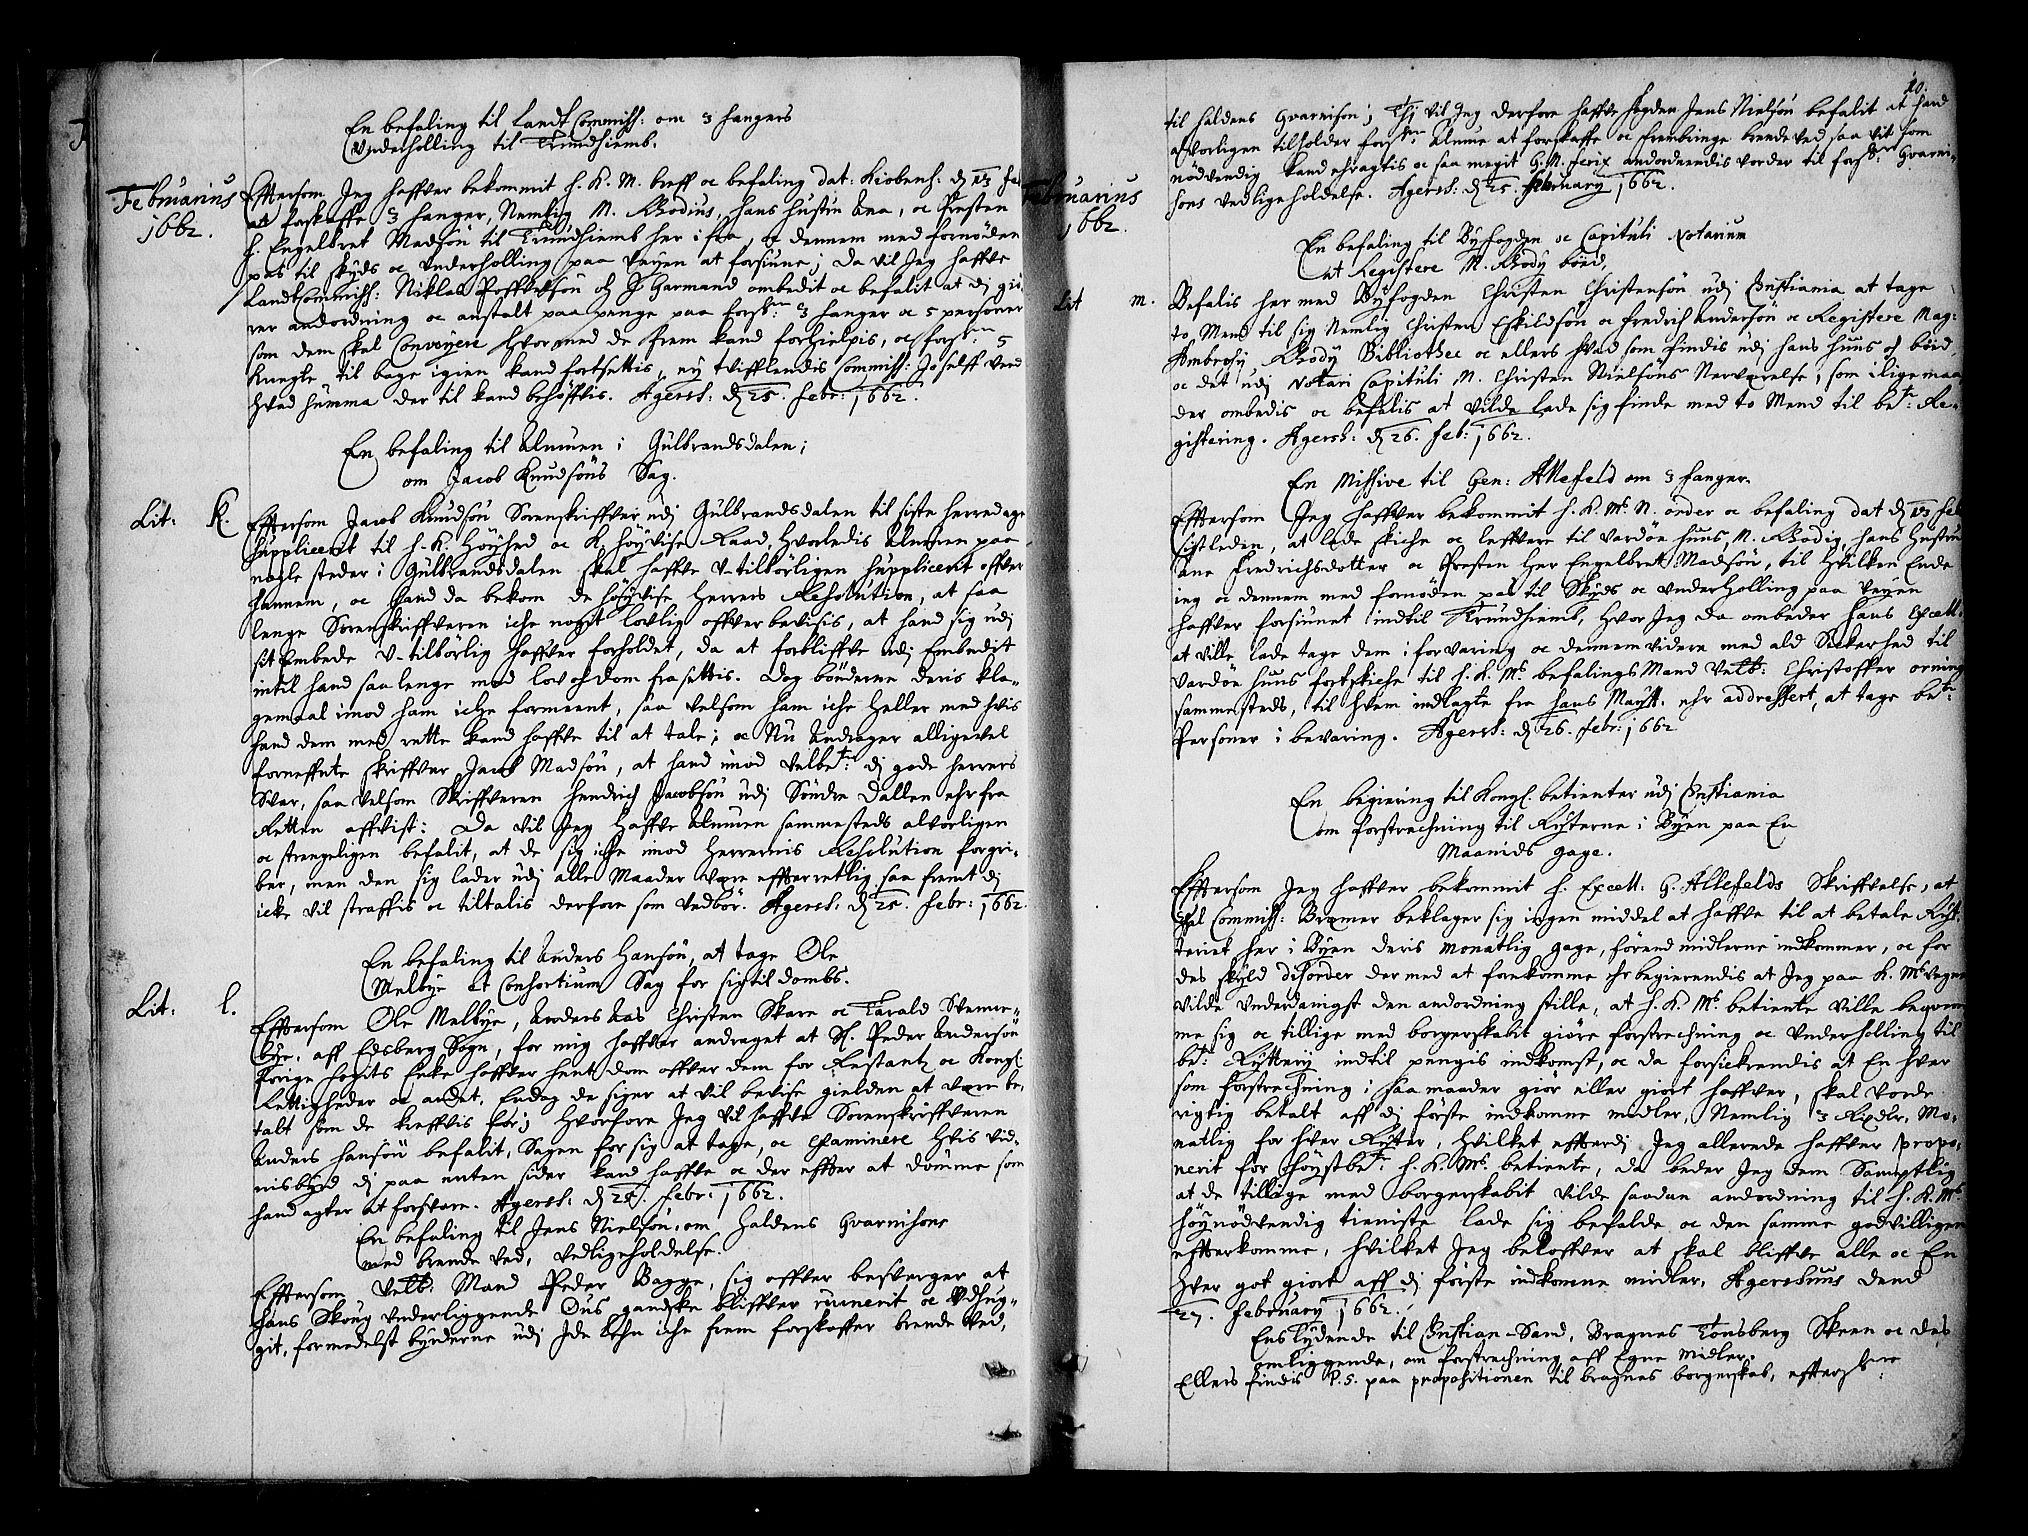 En befaling til Landt Commiss: om 3 fangers
Underholling til Trundhiemb.
Februarius
1662.
Efftersom Jeg haffver bekommit H. K. M. breff oc befaling dat: Kiobenh. d. 13 Feb
at forskaffe 3 fanger, Nemlig M. Rhodius, hans hustru Ana, oc Presten
H. Engelbret Madsön til Trundhiemb her ifra, oc dennem med fornöden
pas til skyds oc underholling paa Veyen at forsiune; Da vil Jeg haffve
LandtCommiss: Niklas Poffvelsön oc J Garmand ombedit oc befalit at di giö,
rer andordning oc anstalt paa penge paa forsk: 3 fanger oc 5 personer
som dem skal Convoyere hvor med de frem kand forhielpis, oc forsk: 5
Knegte til bage igien kand fortsettis, ey tvifflendis Commiss: Jo selff veed
hvad summa der til kand behöffvis. Agersh: d. 25. Febr: 1662.
En befaling til Almuen i Gulbrandsdalen;
om Jacob Knudsöns Sag.
Lit: K.
Efftersom Jacob Knudsön Sorenskriffver udj Gulbrandsdalen til siste herredage
suppliceret til H. K. Höyhed oc K. höyvise Raad, hvorledis Almuen paa
nogle steder i Gulbrandsdalen skal haffve V-tilbörligen suppliceret offver
hannem, oc hand da bekom de höyvise Herrers Resolution, at saa
lenge Sorenskriffveren iche nogit lovlig offverbevisis, at hand sig udj
sit Embede V-tilbörlig haffver forholdet, da at forbliffve udj Embedit
intil hand saa lenge med lov oc dom fra settis. Dog bönderne deris kla-
gemaal imod ham iche formeent, saa velsom ham iche heller med hvis
hand dem med rette kand haffve til at tale; oc Nu Andrager alligevel
forneffnte skriffver Jacob Madsön, at hand imod velbete: di gode herrers
Svar, saa velsom Skriffveren Hendrich Jacobsön udj Söndre Dallen ehr fra
Retten affvist: Da vil Jeg haffve Almuen sammesteds alvorligen
oc strengeligen befalit, at de sig iche imod Herrernis Resolution forgri-
ber, men den sig lader udj alle Maader være efterretlig saa fremt di
icke vil straffis oc tiltalis derfore som vedbör. Agersh: d. 25. Febr: 1662.
En befaling til Anders Hansön, at tage Ole
Melbye et Consortium Sag for sig til dombs.
Lit: l.
Efftersom Ole Melbye, Anders Aas Christen Skare oc Tarald Svenne-
bye, aff Edsberg Sogn, for mig haffver andraget at Sl. Peder Andersön
forige fogits Enke haffver hent dom offver dem for Restantz oc Kongl:
Rettigheder oc andet. Endog de siger at vil bevise gielden at være be,
talt som de kreffvis for; Hvorfore Jeg vil haffve Sorenskriffveren
Anders Hansön befalit, Sagen for sig at tage, oc examinere hvis vid-
nisbyrd di paa enten sider kand haffve oc der effter at dömme som
hand agter at forsvare. Agersh: d. 25. Febr: 1662.
En befaling til Jens Nielsön, om Haldens Gvarnisons
med brende ved, vedligeholdelse.
Efftersom Velb: Mand Peder Bagge, sig offver besverger at
hans Skoug underliggende Ous gandske bliffver ruinerit oc Udhug-
git, formedelst bynderne udj Ide Lehn iche frem forskaffer brende ved,
10.
til Haldens Gvarnison; Thj vil Jeg derfore haffve fogden Jens Nielsön befalit at hand
alvorligen tilholder forsk: Almue at forskaffe oc frembringe brende ved saa vit som
nödvendig kand eragtis oc saa megit G. N. ferix andordnendis vorder til forsk: Gvarni-
sons vedligeholdelse. Agersh: d. 25. February 1662.
Februarius
1662.
En befaling til Byfogden oc Capituli Notarium
at Registere M. Rhodij boed,
Lit m.
Befalis her med Byfogden Christen Christensön udj Christiania at tage
to Mend til sig Nemlig Christen Eskildsön oc Fredrich Andersön oc Registere Mag:
Ambrosij Rhodij Bibliothec oc ellers hvad som findis udj hans huus oc boed
oc det udj Notari Capituli M. Christen Nielsöns Nerværelse, som i lige maa
der ombedis oc befalis at vilde lade sig finde med to Mend til bete: Re-
gistering. Agersh: d. 26. Feb: 1662.
En Missive til Gen: Allefeld om 3 fanger.
Efftersom Jeg haffver bekommit H. K. Ms. N. order oc befaling dat d. 13 Feb
sistleden, at lade skiche oc leffvere til Vardöe huus, M. Rhodiu, hans hustru
Ane Fredrichsdotter oc Presten Her Engelbret Madsön, til hvilken Ende
ieg oc dennem med fornöden pas til Skyds oc underholling paa Veyen
haffver forsiunet indtil Trundhiemb, hvor Jeg da ombeder hans Excell:
at ville lade tage dem i forvaring oc dennem videre med ald Sickerhed til
Vardöe huus fortskiche til H. K. Ms. befalings Mand Velb: Christoffer Orning
sammesteds, til hvem indlagte fra hans Maytt. ehr addressert, at tage bete:
Personer i bevaring. Agersh: d. 26. Febr: 1662
En begiering til Kongl. betienter udj Christiania
om forstrechning til Rytterne i Byen paa En
Maanids gage.
Efftersom Jeg haffver bekommit H. Excell: G. Allefelds Skriffvelse, at
Gel Commiss: Bremer beklager sig ingen middel at haffve til at betale Ryt-
teriet her i Byen deris Monatlig gage, förend midlerne indkommer, oc for
des skyld disorder der med at forekomme ehr begierendis at Jeg paa K. Ms. vegne
vilde Underdanigst den andordning stille, at H. K. Ms. betiente ville beqvem
me sig oc tillige med borgerskabit giöre forstrechning oc underholling til
bete: Rytterij indtil pengis indkomst, oc da forsickrendis at En hver
som forstrechning i saa maader giör eller giort haffver, skal vorde
rigtig betalt aff di förste indkomne midler, Nemlig 3 Rixdlr. Mo-
natlig for hver Rytter, hvilket effterdj Jeg allerede haffver propo-
nerit for höystbete: H. K. Ms. betiente, da beder Jeg dem Samptlig
at de tillige med borgerskabit vilde saadan andordning til H. K. Ms.
höynödvendig tieniste lade sig befalde oc den samme godvilligen
effterkomme, hvilket Jeg beloffver at skal bliffve alle oc En
hver got giort aff di förste indkomne midler. Agershuus Dend
27. February 1662.
Enslydende til Christian-Sand, Bragnes Tonsberg Skeen oc des
omliggende, om forstrechning aff Egne midler.
Ellers findis P.S. paa propositionen til bragnes borgerskab,